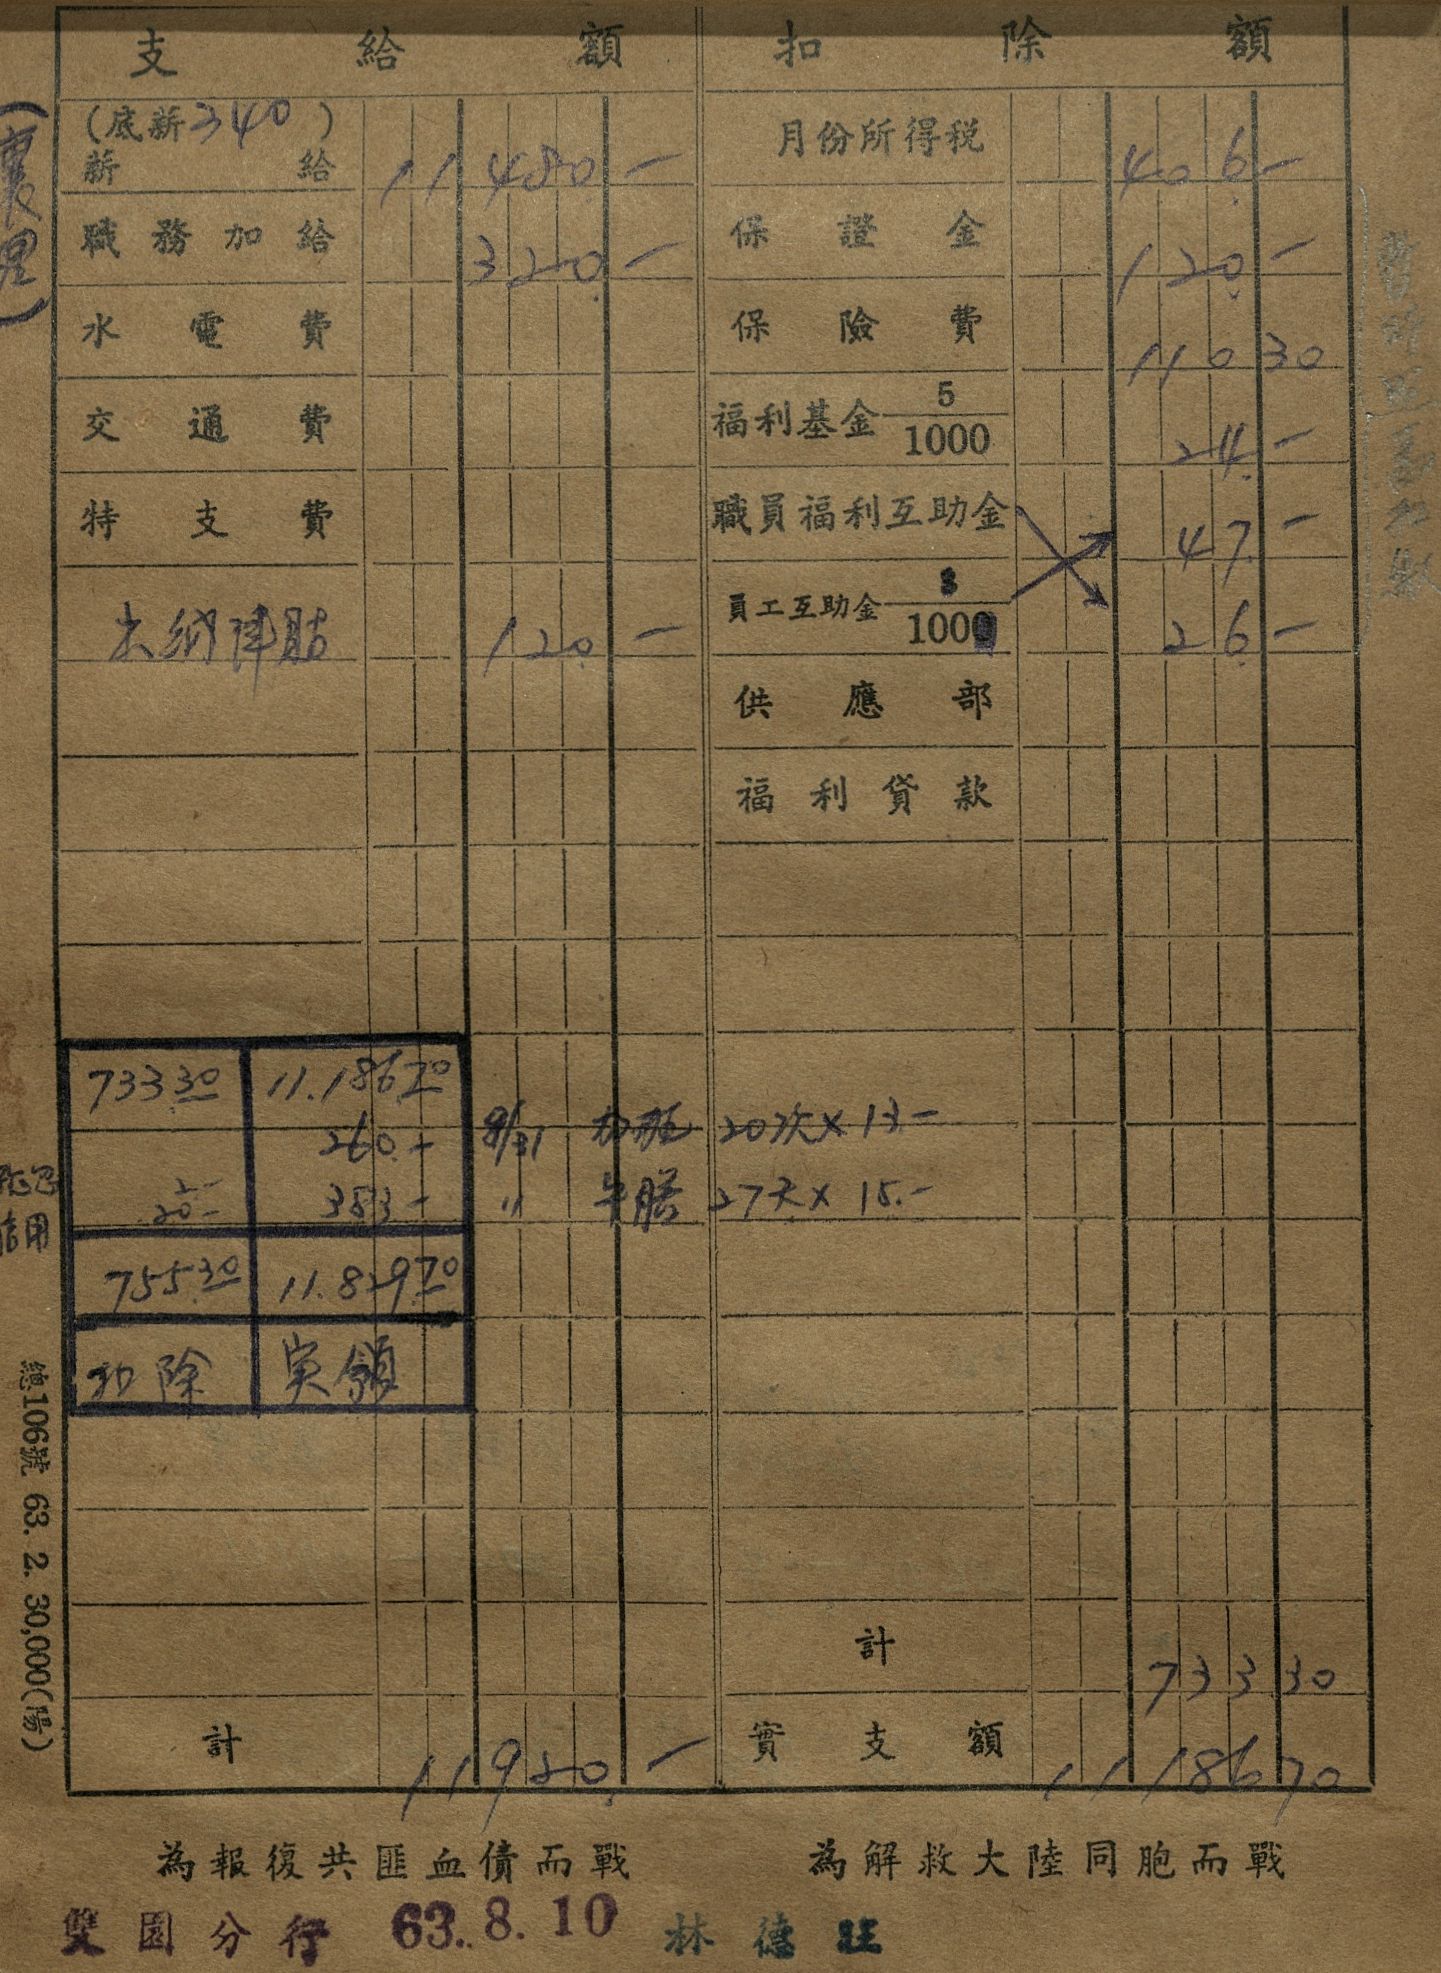 支給額 扣除額
(底薪340)
薪給 11480.- 月份所得稅 406.-
職務加給 320.- 保證金 120.-
水電費 保險費 110 30
交通費 福利基金 5/1000 24.-
特支費 職員福利互助金 47.-
出納津貼 120.- 員工互助金 3/1000 26.-
供應部
福利貸款
(襄理)
733.30 11.186.70
260.- 8/31 加班 20次×13.-
2.-
20.- 383.- 〃 午膳 27天×15.-
信用
755.30 11.829.70
扣除 実領
計 733 30
計 11920.- 實支額 11186 70
總106號 63. 2. 30,000(陽)
為報復共匪血債而戰 為解救大陸同胞而戰
雙園分行 63.8.10 林德旺